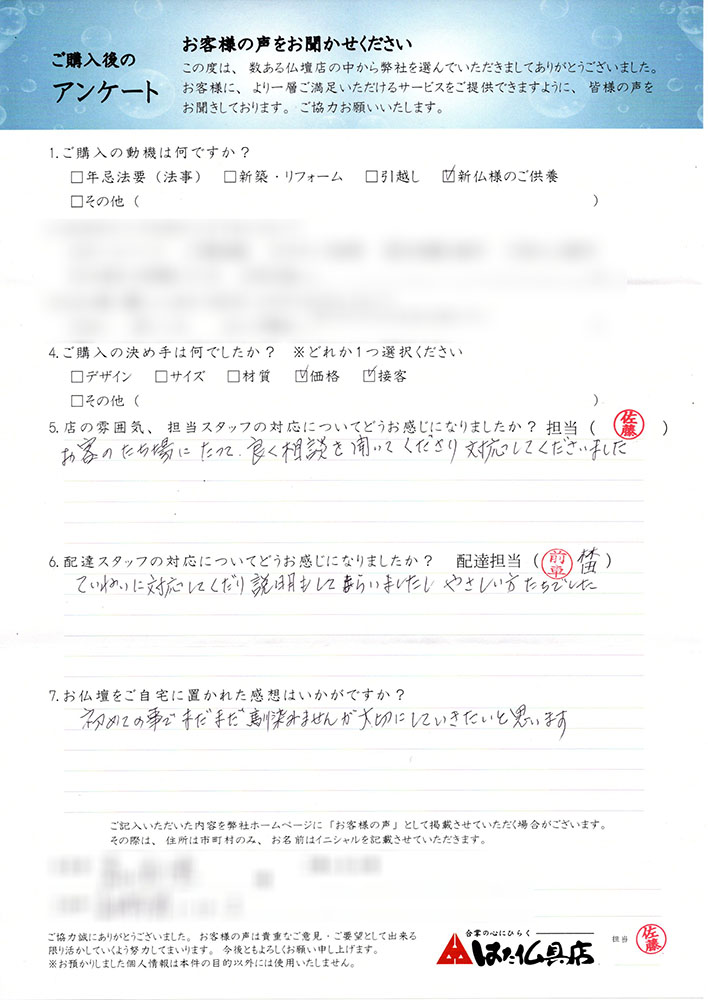 ご購入後の
アンケート
お客様の声をお聞かせください
この度は、数ある仏壇店の中から弊社を選んでいただきましてありがとうございました。
お客様に、より一層ご満足いただけるサービスをご提供できますように、皆様の声を
お聞きしております。ご協力お願いいたします。
1.ご購入の動機は何ですか？
□年忌法要（法事） □新築・リフォーム □引越し ☑新仏様のご供養
□その他（ ）
4.ご購入の決め手は何でしたか？ ※どれか1つ選択ください
□デザイン □サイズ □材質 ☑価格 ☑接客
□その他（ ）
5.店の雰囲気、担当スタッフの対応についてどうお感じになりましたか？担当（ 佐藤 ）
お客のたち場にたって、良く相談を聞いてくださり対応してくださいました
6.配達スタッフの対応についてどうお感じになりましたか？ 配達担当（ ）
ていねいに対応してくだり説明もしてもらいましたし やさしい方たちでした
7.お仏壇をご自宅に置かれた感想はいかがですか？
初めての事でまだまだ馴染めませんが大切にしていきたいと思います
ご記入いただいた内容を弊社ホームページに「お客様の声」として掲載させていただく場合がございます。
その際は、住所は市町村のみ、お名前はイニシャルを記載させていただきます。
ご協力誠にありがとうございました。お客様の声は貴重なご意見・ご要望として出来る
限り活かしていくよう努力してまいります。今後ともよろしくお願い申し上げます。
※お預かりしました個人情報は本件の目的以外には使用いたしません。
合掌の心にひらく
はた仏具店
担当 佐藤